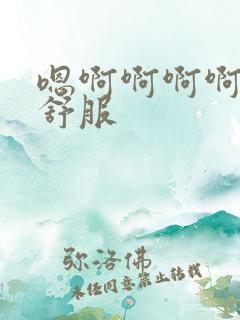 嗯啊啊啊啊
舒服
弥洛佛
未经同意禁止转载